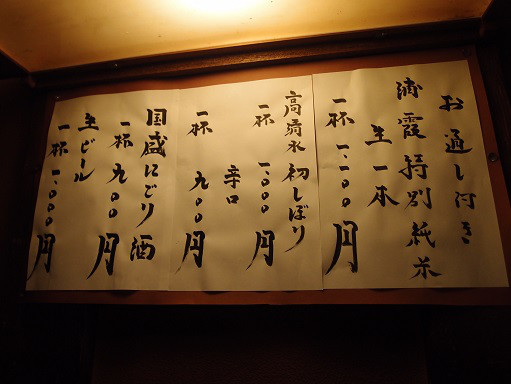 お通し付き
浦霞特別純米
生一本
一杯 一、一〇〇円
高清水 初しぼり
一杯 一、〇〇〇円
辛口
一杯 九〇〇円
国盛にごり酒
一杯 九〇〇円
生ビール
一杯 一、〇〇〇円